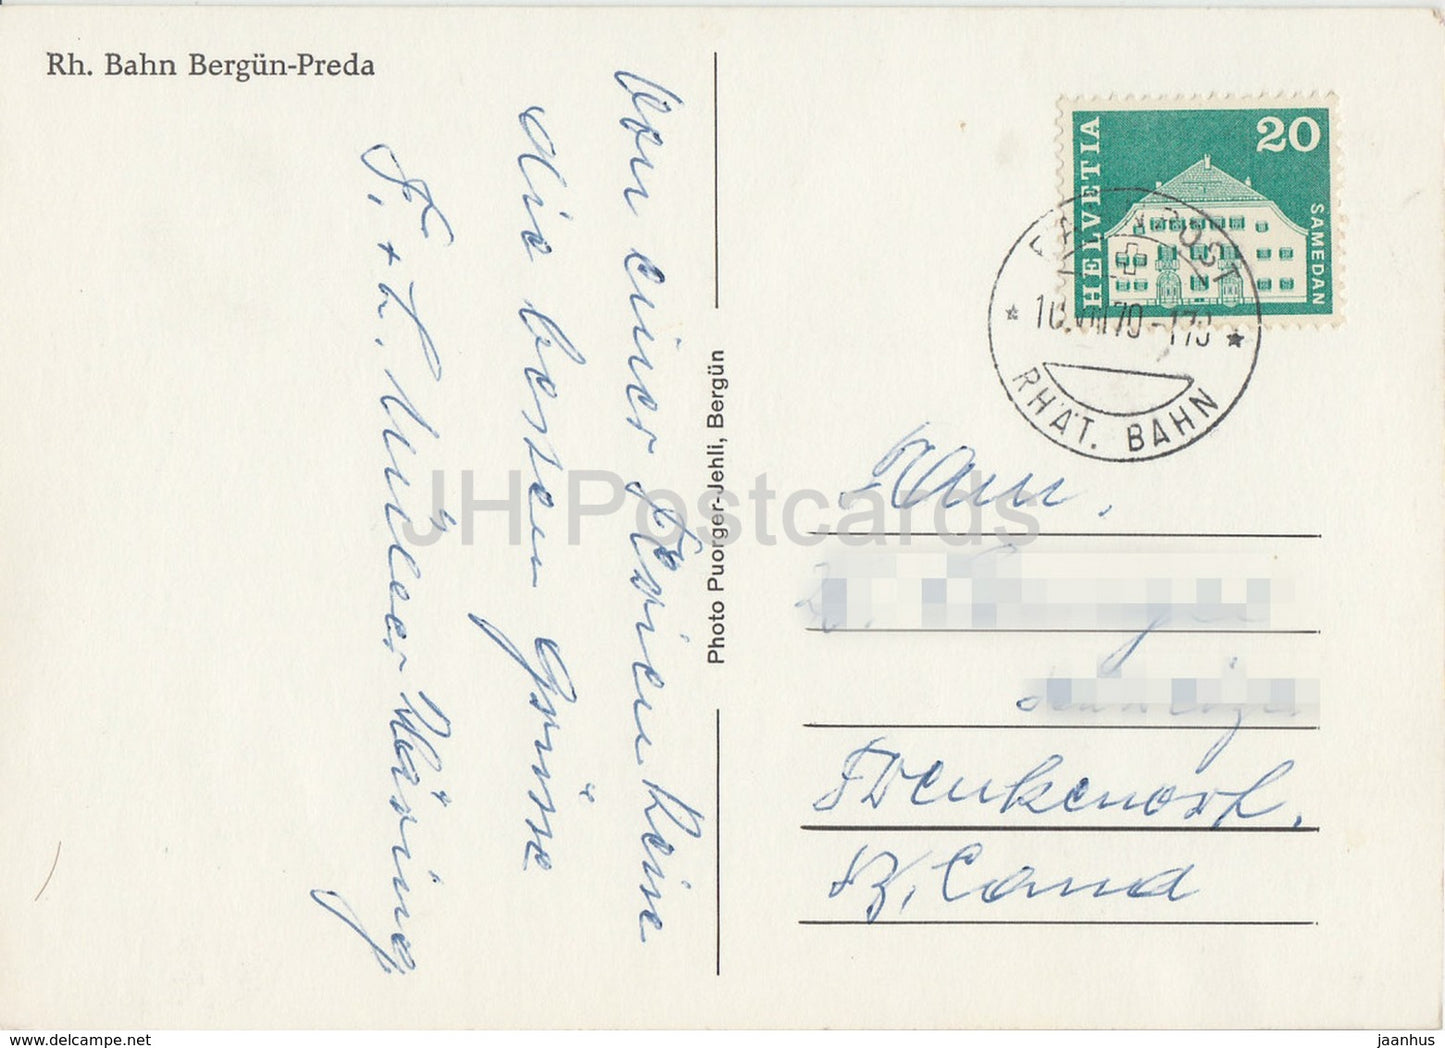 Rh. Bahn Bergün-Preda
Von einer Ferien Reise
die besten Grüsse
F. + L. Müller Häring
Photo Puorger-Jehli, Bergün
HELVETIA
20
SAMEDAN
BAHNPOST
RHÄT. BAHN
Fam.
Frenkendorf.
Bz. Land
JH Postcards
www.delcampe.net
jaanhus